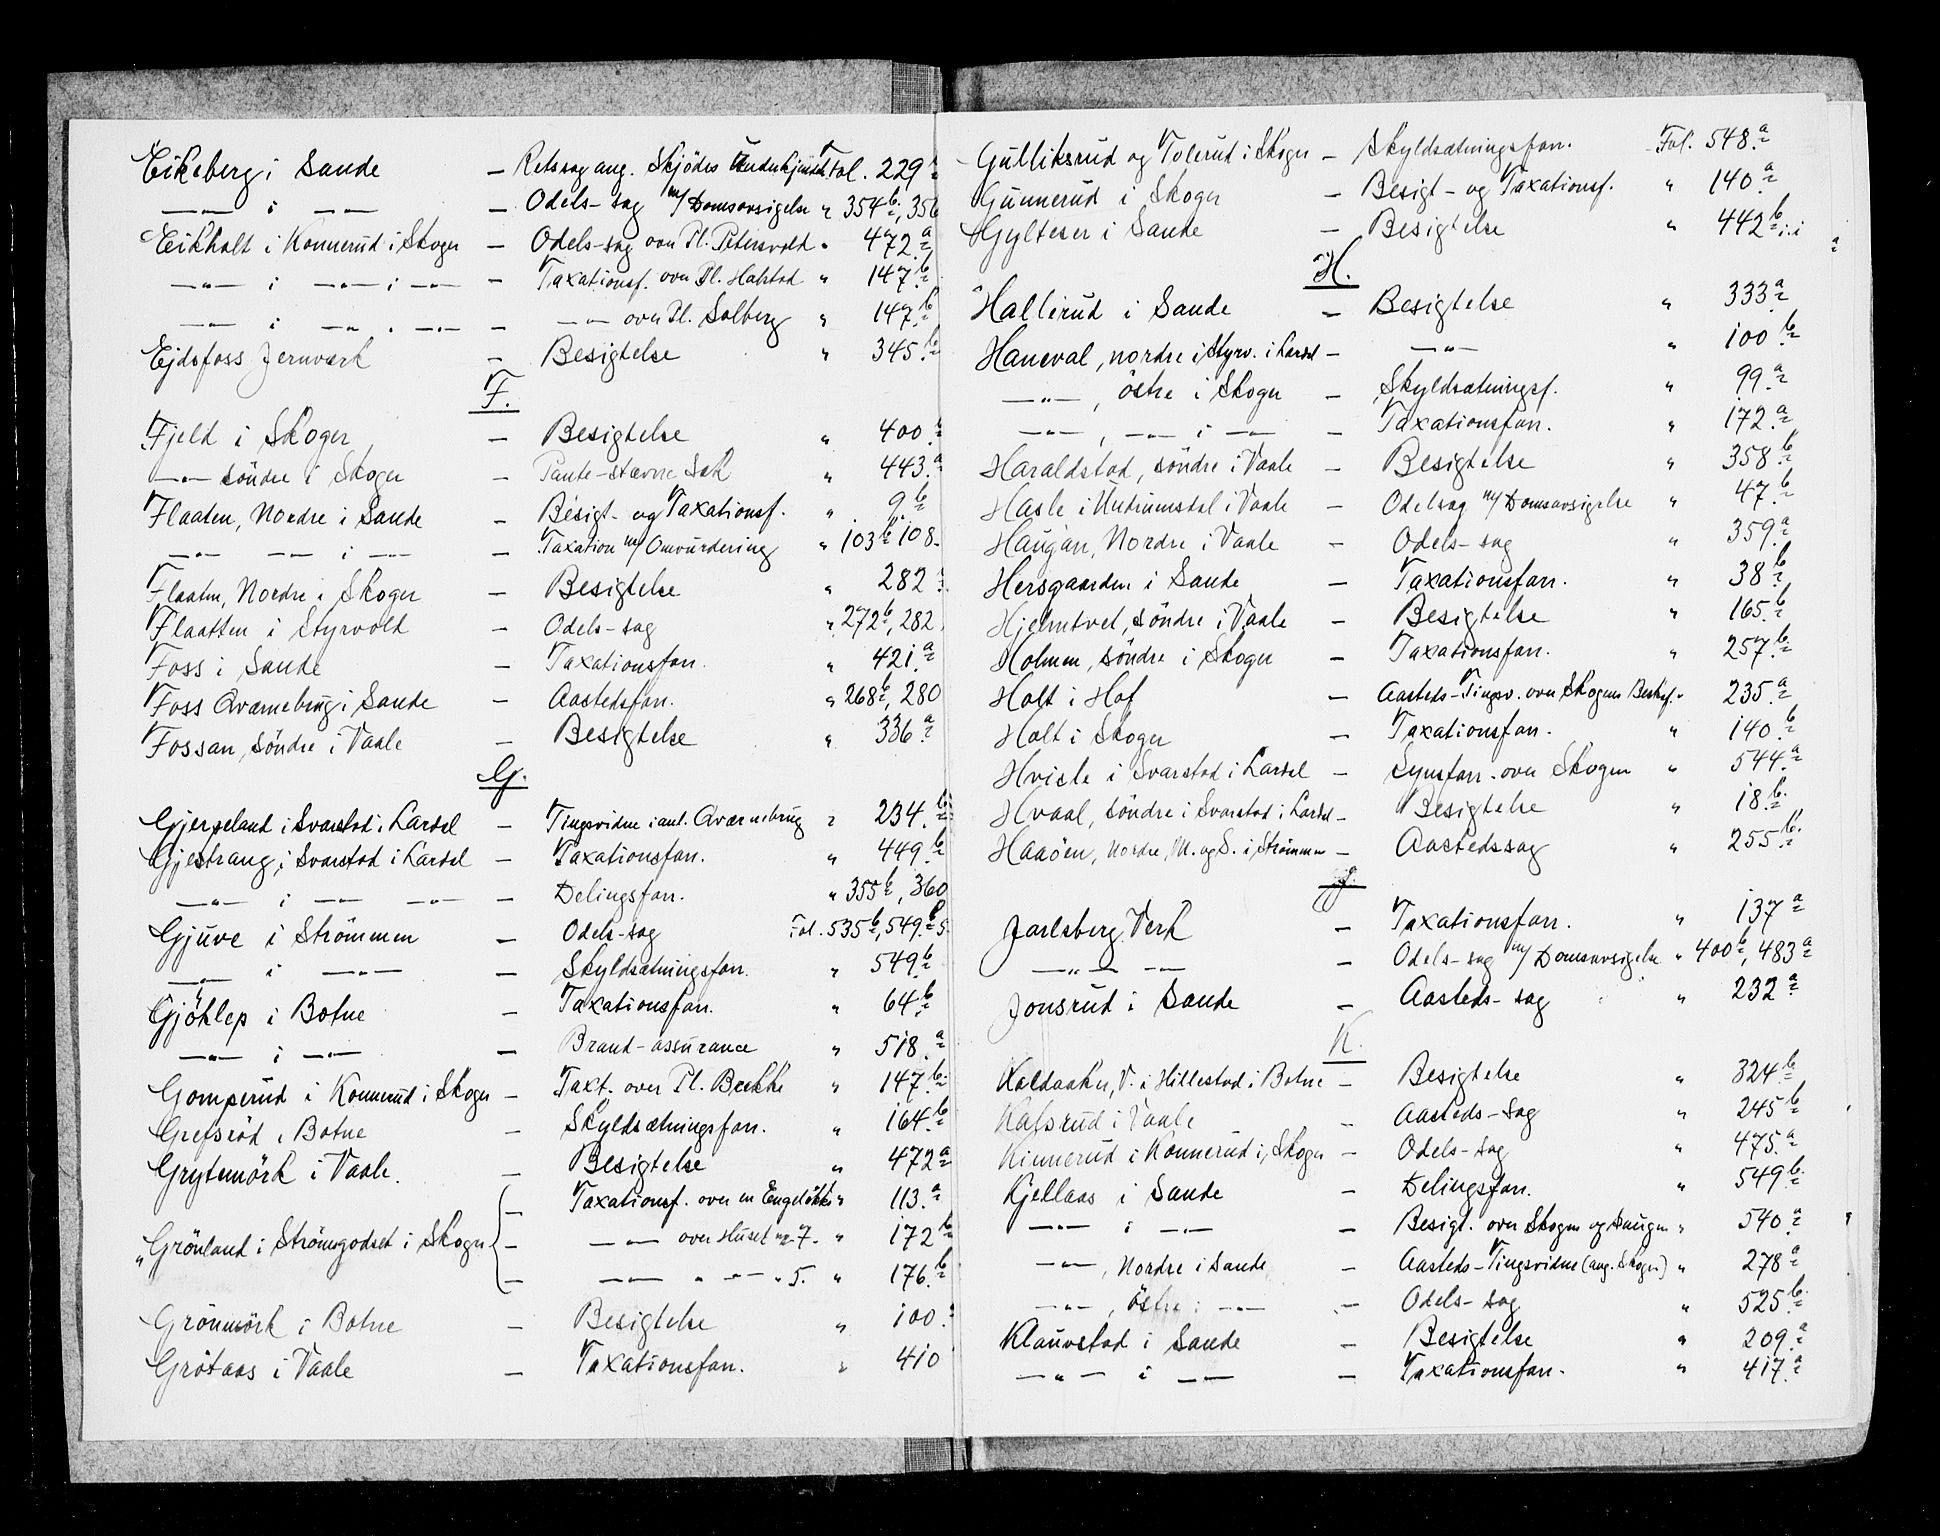 Eikeberg i Sande — Retssag ang. Skjödes Underkjendelse Fol. 229
—"— i —"— — Odels-sag m/ Domsavsigelse " 354b, 356
Eikholt i Konnerud i Skoger — Odels-sag over Pl. Petersvold " 472a
—"— i —"— i —"— — Taxationsf. over Pl. Halstad " 147b
—"— i —"— i —"— — —"— over Pl. Solberg " 147b
Ejdsfoss Jernværk — Besigtelse " 345b
F.
Fjeld i Skoger — Besigtelse " 400
—"— söndre i Skoger — Pante-stævne Sak " 443a
Flaaten, Nordre i Sande — Besigt- og Taxationsf. " 9b
—"— —"— i —"— — Taxation m/ Omvurdering " 103b, 108
Flaaten, Nordre i Skoger — Besigtelse " 282
Flaatten i Styrvold — Odels-sag " 272b, 282
Foss i Sande — Taxationsforr. " 421a
Foss Qværnebrug i Sande — Aastedsforr. " 268b, 280
Fossan, söndre i Vaale — Besigtelse " 336a
G.
Gjerpeland i Svarstad i Lardal — Tingsvidne i anl. Qværnebrug " 234b
Gjestrang i Svarstad i Lardal — Taxationsforr. " 449b
—"— i —"— —"— — Delingsforr. " 355b, 360
Gjuve i Strömmen — Odels-sag Fol. 535b, 549b
—"— i —"— — Skyldsætningsforr. " 549b
Gjöklep i Botne — Taxationsforr. " 64b
—"— i —"— — Brand-assurance " 518a
Gomperud i Konnerud i Skoger — Taxt. over Pl. Brekke " 147b
Grefsröd i Botne — Skyldsætningsforr. " 164b
Grytemörk i Vaale. — Besigtelse " 472a
— Taxationsf. over en Engelökke " 113a
"Grönland i Strömsgodset i Skoger — —"— over Huset no 7. " 172b
— —"— " —"— " 5. " 176b
Grönmörk i Botne — Besigtelse " 100
Grötaas i Vaale — Taxationsforr. " 410
Gulliksrud og Tolerud i Skoger — Skyldsætningsforr. Fol. 548a
Gunnerud i Skoger — Besigt- og Taxationsf. " 140a
Gylteser i Sande — Besigtelse " 442b
H.
Hallerud i Sande — Besigtelse " 333a
Haneval, nordre i Styrv. i Lardal — —"— " 100b
—"—, östre i Skoger — Skyldsætningsf. " 99a
—"—, —"— i —"— — Taxationsforr. " 172a
Haraldstad, söndre i Vaale — Besigtelse " 358b
Hasle i Undrumsdal i Vaale — Odelssag m/ Domsavsigelse " 47b
Haugan, Nordre i Vaale — Odels-sag " 359a
Hersgaarden i Sande — Taxationsforr. " 38b
Hjelmtvet, söndre i Vaale — Besigtelse " 165b
Holmen, söndre i Skoger — Taxationsforr. " 257b
Holt i Hof — Aasteds-Tingsv. over Skogens Beskaf. " 235a
Holt i Skoger — Taxationsforr. " 140b
Hvisle i Svarstad i Lardal — Synsforr. over Skogen " 544a
Hvaal, söndre i Svarstad i Lardal — Besigtelse " 18b
Haaöen, Nordre, M. og S. i Strömmen — Aastedssag " 255b
J.
Jarlsberg Verk — Taxationsforr. " 137a
—"— —"— — Odels-sag m/ Domsavsigelse " 400b, 483a
Jonsrud i Sande — Aasteds-sag " 232a
K.
Kaldaaker, V. i Hillestad i Botne — Besigtelse " 324b
Kalsrud i Vaale — Aasteds-sag " 245b
Kinnerud i Konnerud i Skoger — Odels-sag " 475a
Kjellaas i Sande — Delingsforr. " 549b
—"— i —"— — Besigt. over Skogen og Saugen " 540a
—"—, Nordre i Sande — Aasteds-Tingsvidne (ang. Skogen) " 278a
—"—, östre i —"— — Odels-sag " 525b
Klaüvstad i Sande — Besigtelse " 209a
—"— i —"— — Taxationsforr. " 417a